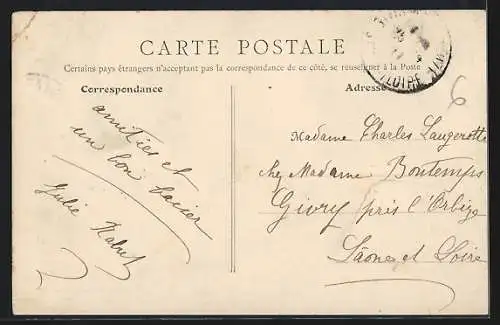 CARTE POSTALE
Certains pays étrangers n'acceptant pas la correspondance de ce côté, se renseigner à la Poste
Correspondance
Adresse
amitiés et
un bon baiser
Julie
Madame Charles Laugerotte
chez Madame Bontemps
Givry près l'Orbize
Saône et Loire
LOIRE
6